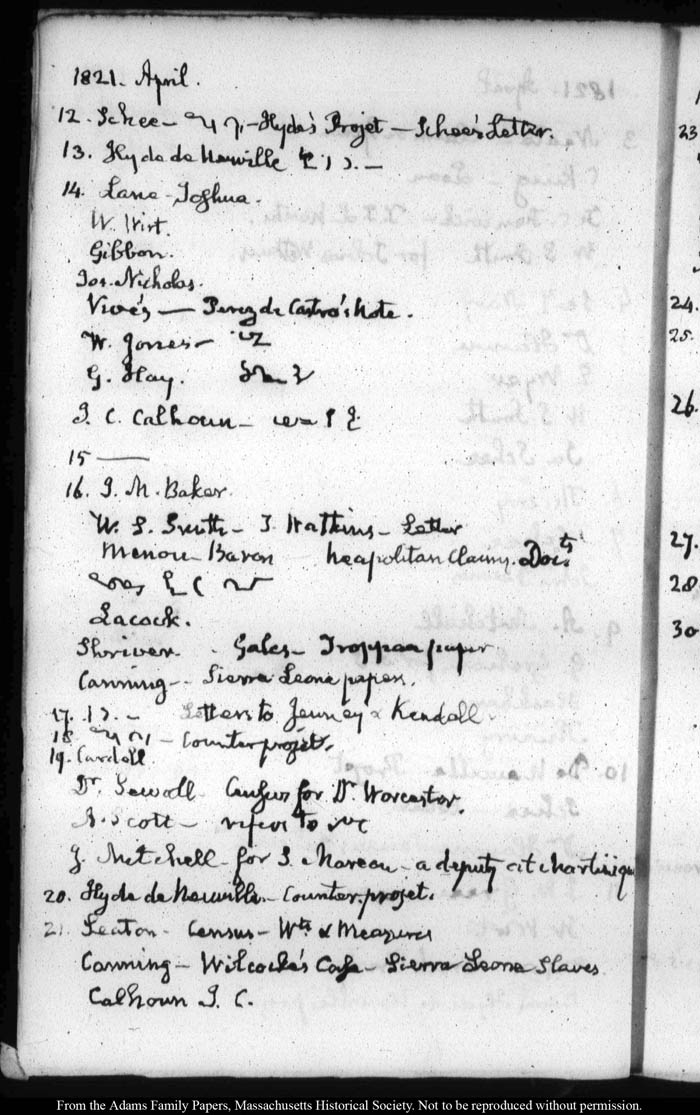 1821. April.
12. Schee - Hyde's Projet - Schee's Letter.
13. Hyde de Neuville
14. Lane - Joshua.
W. Wirt.
Gibbon.
Jos. Nicholas.
Vivés - Perez de Castro's Note.
W. Jones -
G. Hay.
J. C. Calhoun -
15 -
16. J. M. Baker.
W. S. Smith - T. Watkins - Letter
Menou - Baron Neapolitan Claims. Docts.
Lacock.
Shriver. Gales - Troppau paper
Canning - Sierra Leone papers.
17. Letters to Jenney & Kendall.
18 - Counterprojet.
19. Cardell
Dr. Sewall. Census for Dr. Worcester.
A. Scott - refer to
J. Mitchell - for J. Mareau - a deputy at Martiniqu
20. Hyde de Neuville - Counter-projet.
21. Seaton - Census - Wts & Measures
Canning - Wilcocks's Case - Sierra Leone Slaves
Calhoun J. C.
23
24.
25.
26.
27.
28
30
From the Adams Family Papers, Massachusetts Historical Society. Not to be reproduced without permission.